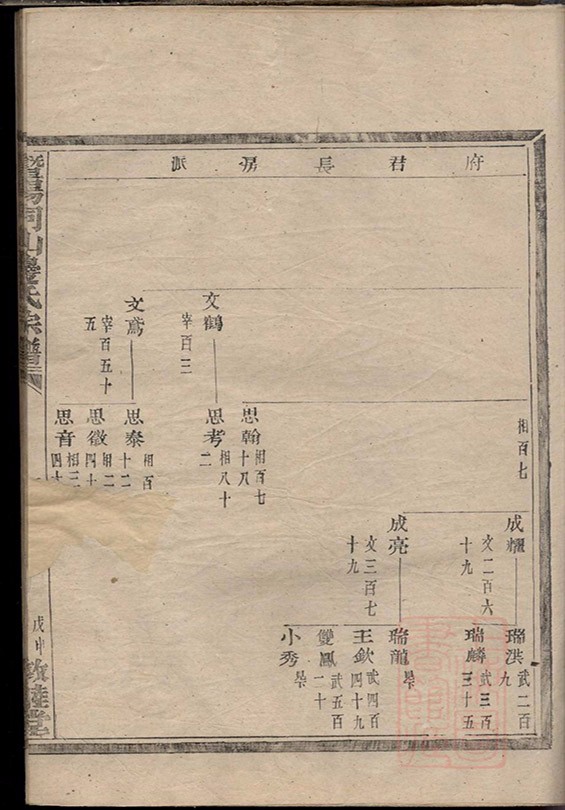 府君長房派
相百七
成耀
文二百六
十九
瑞洪
武二百
九
瑞麟
武三百
三十五
成亮
文三百七
十九
瑞龍
早卒
王欽
武四百
四十九
雙鳳
武五百
一十
小秀
早卒
思翰
相百七
十八
文鶴
宰百三
思考
相八十
二
文鳶
宰百五十
五
思泰
相百
十二
思徵
相二
四十
思音
相二
四十
陽同山
氏宗譜
戊申
敦睦堂